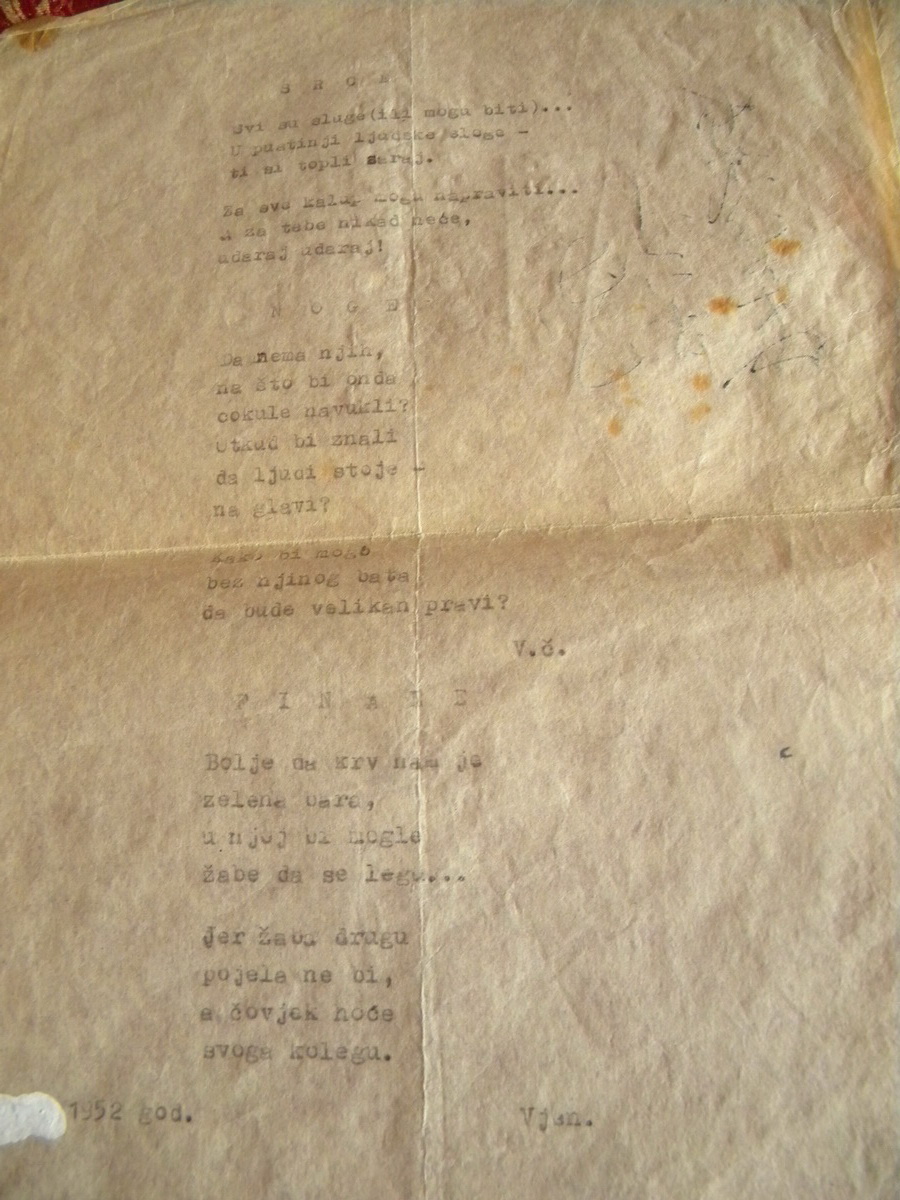 S R C E
Svi su sluge(ili mogu biti)...
U pustinji ljudske sloge -
ti si topli saraj.
Za sve kalup mogu napraviti...
a za tebe nikad neće,
udaraj udaraj!
N O G E
Da nema njih,
na što bi onda
cokule navukli?
Otkud bi znali
da ljudi stoje -
na glavi?
Kako bi mogo
bez njinog bata
da bude velikan pravi?
V.č.
F I N A L E
Bolje da krv nam je
zelena bara,
u njoj bi mogle
žabe da se legu...
Jer žaba drugu
pojela ne bi,
a čovjek hoće
svoga kolegu.
1952 god.
Vjen.